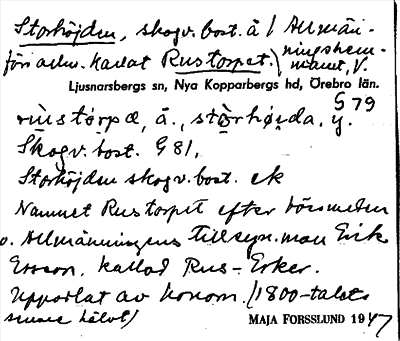 Storhöjden, skogv. bost. å / Allmän-
förr allm. kallat Rustorpet. / ningshem-
manet, V.
Ljusnarsbergs sn, Nya Kopparbergs hd, Örebro län.
G 79
rùstòrpæ, ä., stòrhøi̯da, y.
Skogv. bost. G 81,
Storhöjden skogv. bost. ek
Namnet Rustorpet efter
o. Allmänningens tillsyn. man Erik
Ersson, kallad Rus-Erker.
Upporlat av honom. (1800-talets
senare hälvt)
MAJA FORSSLUND 1947